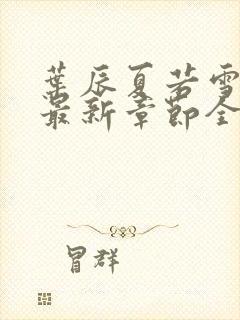 叶辰夏若雪
最新章节全
冒群